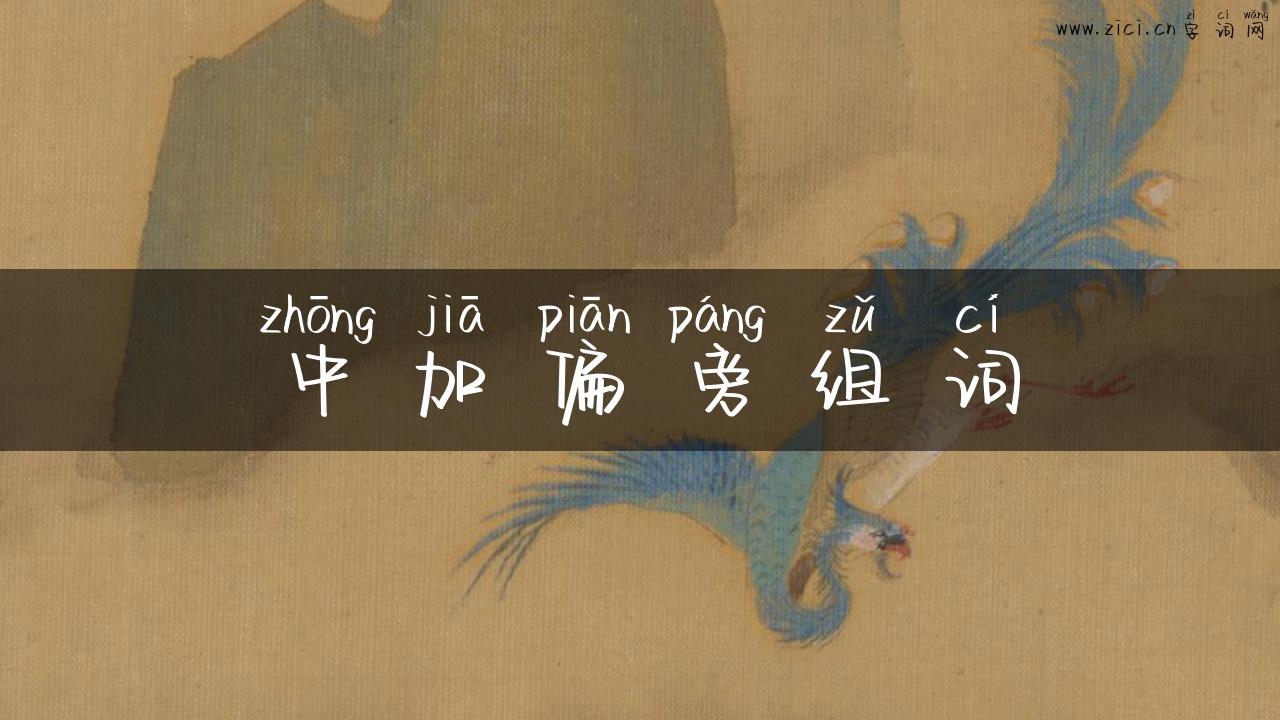 zì cí wǎng
www.zici.cn字词网
zhōng jiā piān páng zǔ cí
中加偏旁组词